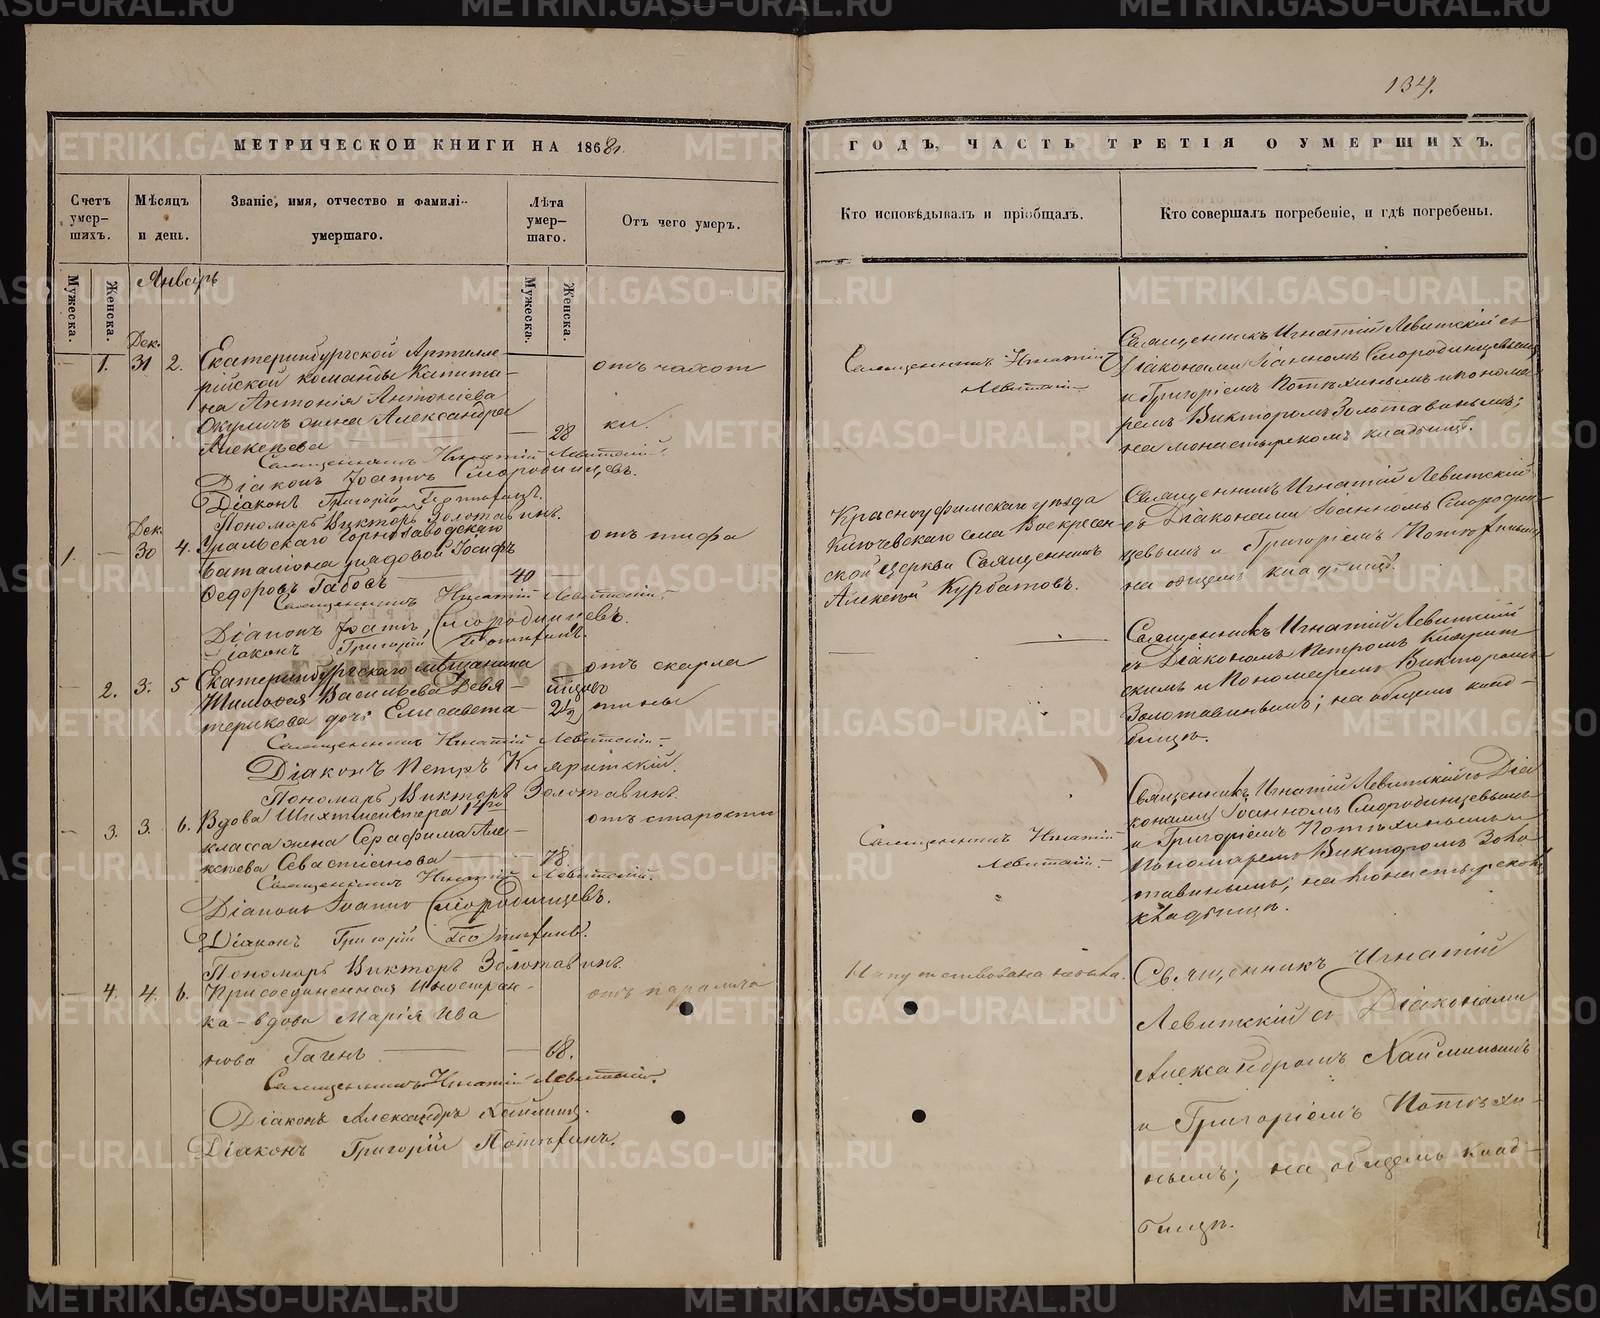 134.
МЕТРИЧЕСКОЙ КНИГИ НА 1868
ГОДЪ, ЧАСТЬ ТРЕТІЯ О УМЕРШИХЪ.
Счетъ умер-шихъ.
Мѣсяцъ и день.
Званіе, имя, отчество и фамилі- умершаго.
Лѣта умер-шаго.
Отъ чего умеръ.
Кто исповѣдывалъ и пріобщалъ.
Кто совершалъ погребеніе, и гдѣ погребены.
Мужеска.
Женска.
Январь
Мужеска.
Женска.
Дек.
1. 31 2. Екатеринбургской Артилле-
рійской команды Капита-
на Антонія Антоніева
Окуличъ жена Александра
Алексѣева 28
отъ чахот
ки.
Священникъ Игнатій Левитскій.
Діаконъ Іоаннъ Смородинцевъ.
Діаконъ Григорій Потѣхинъ.
Пономарь Викторъ Золотавинъ.
Священникъ Игнатій
Левитскій
Священникъ Игнатій Левитскій съ
Діаконами Іоанномъ Смородинцевымъ
и Григоріемъ Потѣхинымъ и понома
ремъ Викторомъ Золотавинымъ;
на монастырскомъ кладбищѣ.
Дек.
1. 30 4. Уральскаго Горнозаводскаго
баталіона рядовой Іосифъ
Ѳедоровъ Габовъ 40
отъ тифа
Священникъ Игнатій Левитскій.
Діаконъ Іоаннъ Смородинцевъ.
Діаконъ Григорій Потѣхинъ.
Красноуфимскаго уѣзда
Ключевскаго села Воскресен-
ской церкви Священникъ
Алексѣй Курбатовъ.
Священникъ Игнатій Левитскій
съ Діаконами Іоанномъ Смородин-
цевымъ и Григоріемъ Потѣхинымъ
на общемъ кладбищѣ.
2. 3. 5 Екатеринбургскаго мѣщанина
Васильева Девя-
терикова дочь Елисавета
2 1/2
отъ скарла
тины
Священникъ Игнатій Левитскій.
Діаконъ Петръ Кияритскій.
Пономарь Викторъ Золотавинъ.
Священникъ Игнатій Левитскій
съ Діакономъ Петромъ Киярит
скимъ и Пономаремъ Викторомъ
Золотавинымъ; на общемъ клад-
бищѣ.
3. 3. 6. Вдова Шихтмейстера 14го
класса жена Серафима Але-
ксѣева Севастіянова 78.
отъ старости
Священникъ Игнатій Левитскій.
Діаконъ Іоаннъ Смородинцевъ.
Діаконъ Григорій Потѣхинъ.
Пономарь Викторъ Золотавинъ.
Священникъ Игнатій
Левитскій.
Священникъ Игнатій Левитскій съ Діа
конами Іоанномъ Смородинцевымъ
и Григоріемъ Потѣхинымъ и
Пономаремъ Викторомъ Золо
тавинымъ; на монастырскомъ
кладбищѣ.
4. 4. 6. Присоединенная Иностран-
ка - вдова Марія Ива
нова Гагенъ 68.
отъ паралича
Священникъ Игнатій Левитскій.
Діаконъ Александръ
Діаконъ Григорій Потѣхинъ.
Напутствована небыла.
Священникъ Игнатій
Левитскій съ Діаконами
Александромъ
и Григоріемъ Потѣхи-
нымъ; на общемъ клад-
бищѣ.
METRIKI.GASO-URAL.RU